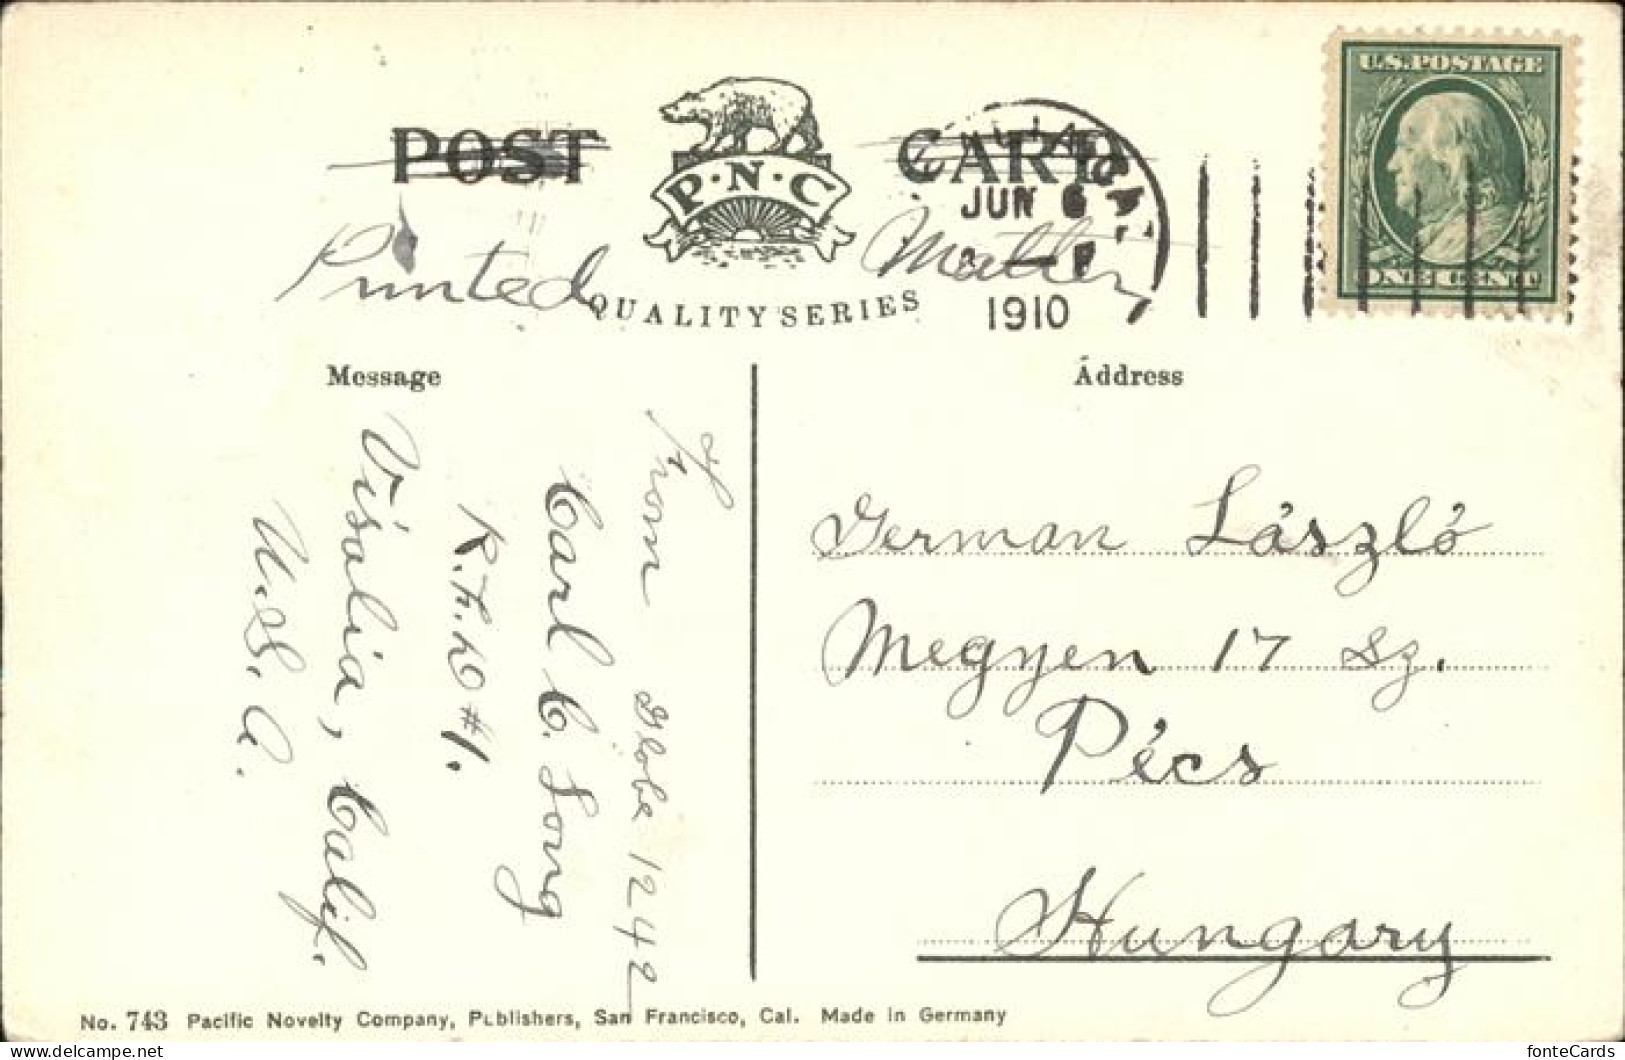 U.S. POSTAGE
POST CARD
P·N·C
JUN 6
1910
ONE CENT
Printed Matter
QUALITY SERIES
Message
Address
From Globe 1242
Carl C. Long
R.F.D #1.
Visalia, Calif.
U.S.A.
German László
Megyen 17 sz.
Pécs
Hungary
No. 743 Pacific Novelty Company, Publishers, San Francisco, Cal. Made in Germany
fonteCards